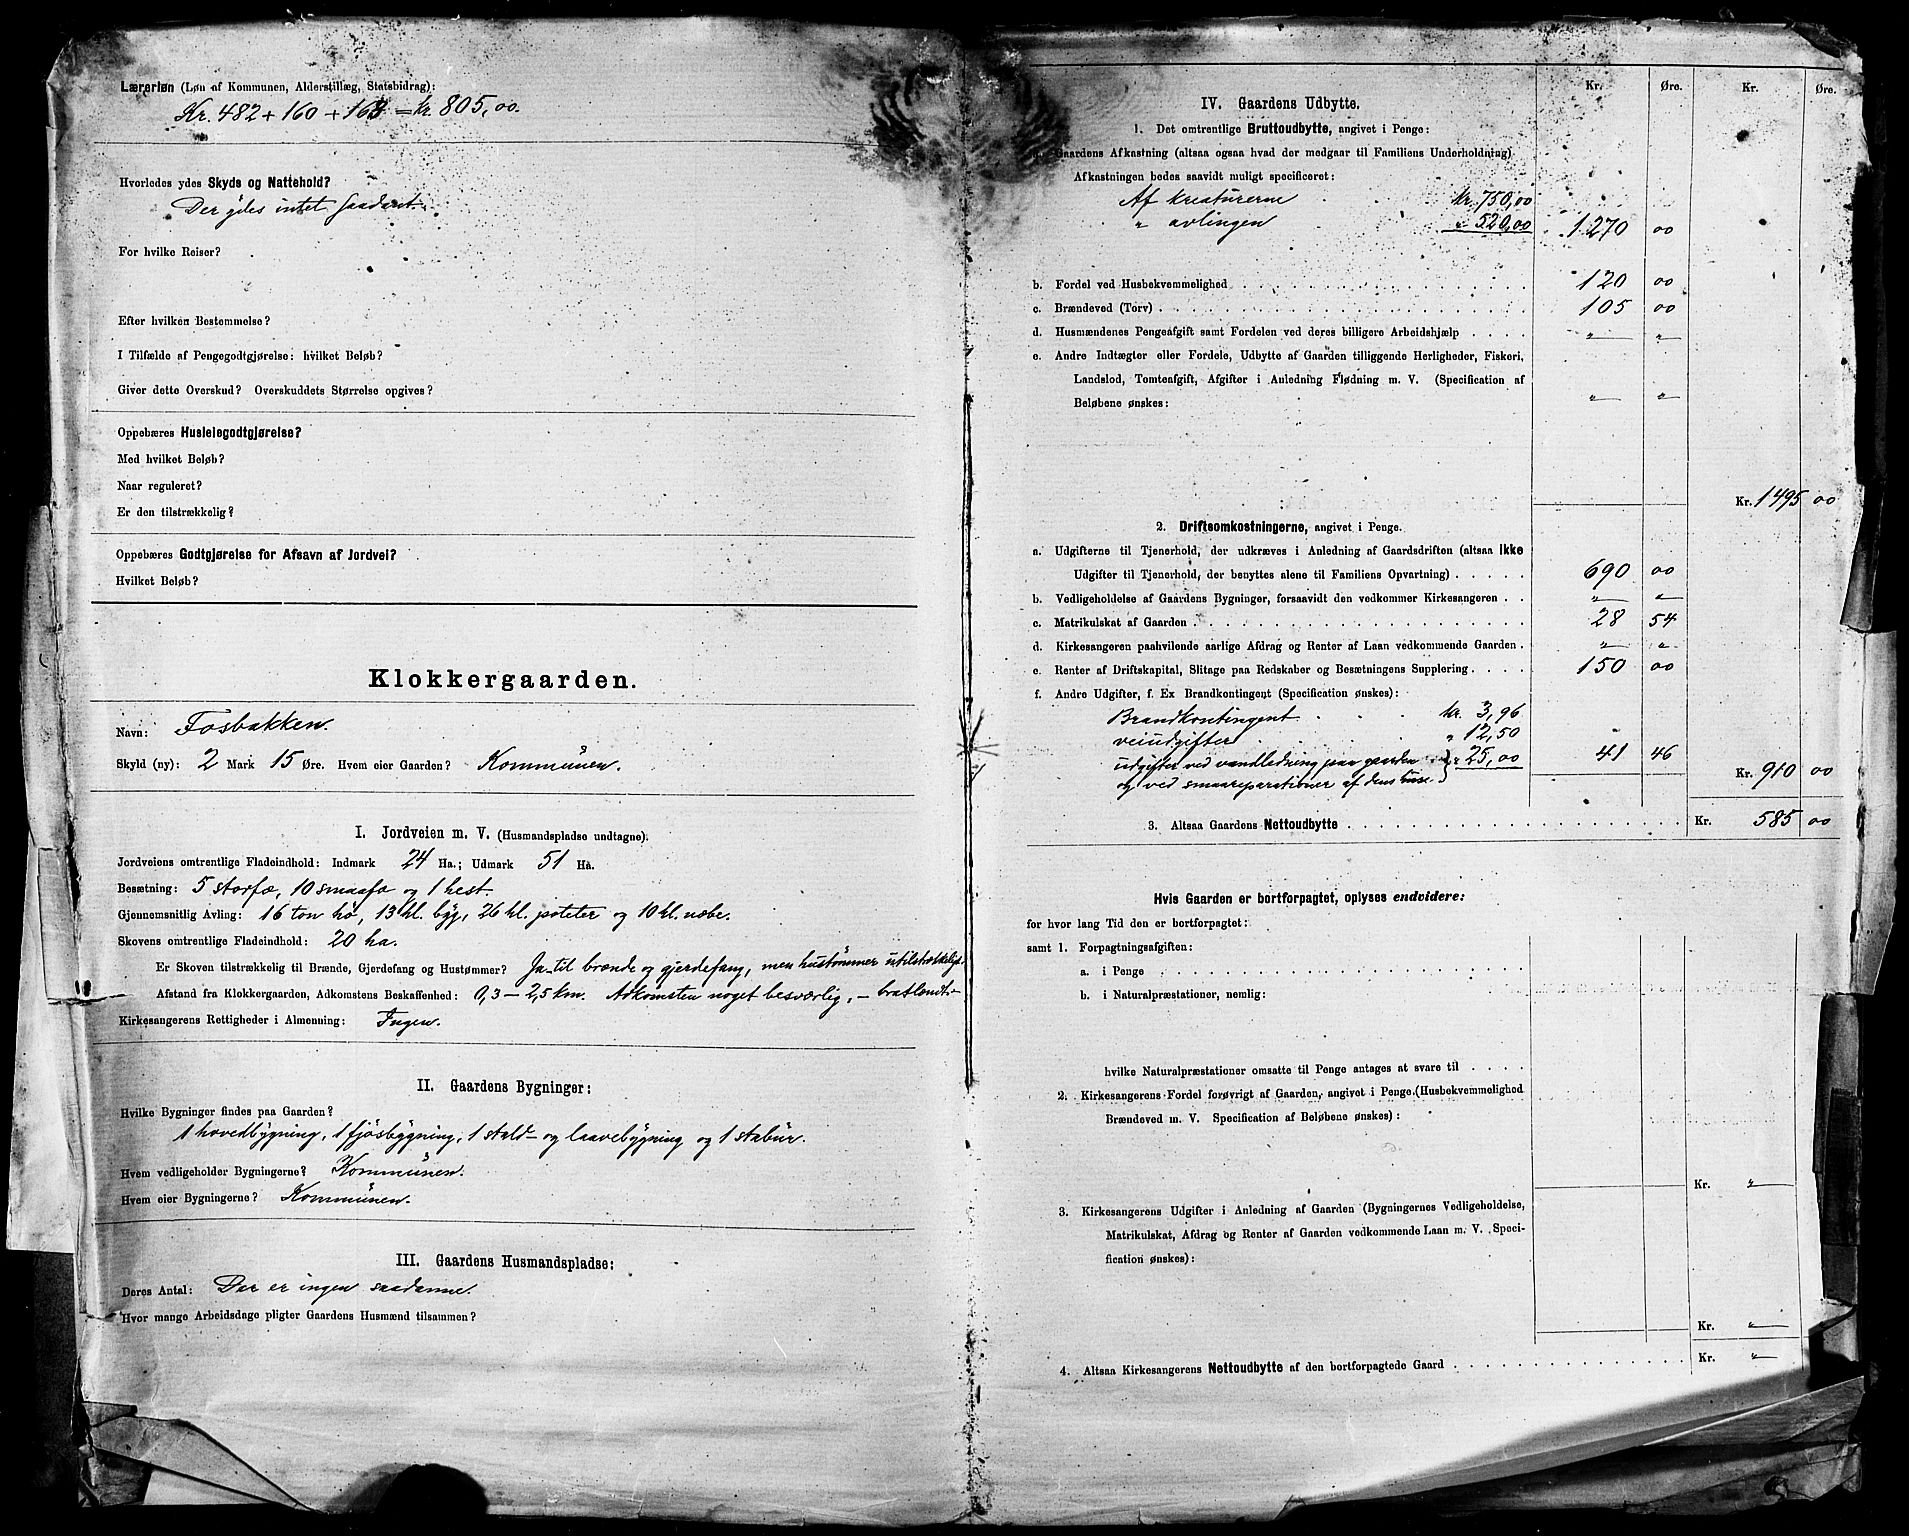 Lærerløn (Løn af Kommunen, Alderstillæg, Statsbidrag):
Kr. 482 + 160 + 163 = kr. 805,00.
Hvorledes ydes Skyds og Nattehold?
Der ydes intet saadant.
For hvilke Reiser?
Efter hvilken Bestemmelse?
I Tilfælde af Pengegodtgjørelse: hvilket Beløb?
Giver dette Overskud? Overskuddets Størrelse opgives?
Oppebæres Husleiegodtgjørelse?
Med hvilket Beløb?
Naar reguleret?
Er den tilstrækkelig?
Oppebæres Godtgjørelse for Afsavn af Jordvei?
Hvilket Beløb?
Klokkergaarden.
Navn: Fosbakken.
Skyld (ny): 2 Mark 15 Øre. Hvem eier Gaarden? Kommunen.
I. Jordveien m. V. (Husmandspladse undtagne).
Jordveiens omtrentlige Fladeindhold: Indmark 24 Ha.; Udmark 51 Ha.
Besætning: 5 storfæ, 10 smaafæ og 1 hest.
Gjennemsnitlig Avling: 16 ton hø, 13 hl. byg, 26 hl. poteter og 10 hl. næbe.
Skovens omtrentlige Fladeindhold: 20 ha.
Er Skoven tilstrækkelig til Brænde, Gjerdefang og Hustømmer? Ja til brænde og gjerdefang, men hustømmer utilstrækkelig.
Afstand fra Klokkergaarden, Adkomstens Beskaffenhed: 0,3 – 2,5 km. Adkomsten noget besværlig, – bratlendt. –
Kirkesangerens Rettigheder i Almenning: Ingen.
II. Gaardens Bygninger:
Hvilke Bygninger findes paa Gaarden?
1 hovedbygning, 1 fjøsbygning, 1 stald- og laavebygning og 1 stabur.
Hvem vedligeholder Bygningerne? Kommunen.
Hvem eier Bygningerne? Kommunen.
III. Gaardens Husmandspladse:
Deres Antal: Der er ingen saadanne.
Hvor mange Arbeidsdage pligter Gaardens Husmænd tilsammen?
Kr. Øre. Kr. Øre.
IV. Gaardens Udbytte.
1. Det omtrentlige Bruttoudbytte, angivet i Penge:
Gaardens Afkastning (altsaa ogsaa hvad der medgaar til Familiens Underholdning)
Afkastningen bedes saavidt muligt specificeret:
Af kreaturerne kr. 750,00
" avlingen " 520,00 1270 00
b. Fordel ved Husbekvemmelighed 120 00
c. Brændeved (Torv) 105 00
d. Husmændenes Pengeafgift samt Fordelen ved deres billigere Arbeidshjælp " "
e. Andre Indtægter eller Fordele, Udbytte af Gaarden tilliggende Herligheder, Fiskeri,
Landslod, Tomteafgift, Afgifter i Anledning Flødning m. V. (Specification af
Beløbene ønskes: " "
Kr. 1495 00
2. Driftsomkostningerne, angivet i Penge.
a. Udgifterne til Tjenerhold, der udkræves i Anledning af Gaardsdriften (altsaa ikke
Udgifter til Tjenerhold, der benyttes alene til Familiens Opvartning) 690 00
b. Vedligeholdelse af Gaardens Bygninger, forsaavidt den vedkommer Kirkesangeren " "
c. Matrikulskat af Gaarden 28 54
d. Kirkesangeren paahvilende aarlige Afdrag og Renter af Laan vedkommende Gaarden " "
e. Renter af Driftskapital, Slitage paa Redskaber og Besætningens Supplering 150 00
f. Andre Udgifter, f. Ex Brandkontingent (Specification ønskes):
Brandkontingent kr. 3,96
veiudgifter " 12,50
udgifter ved vandledning paa gaarden } " 25,00 41 46
og ved smaareparationer af dens huse. Kr. 910 00
3. Altsaa Gaardens Nettoudbytte Kr. 585 00
Hvis Gaarden er bortforpagtet, oplyses endvidere:
for hvor lang Tid den er bortforpagtet:
samt 1. Forpagtningsafgiften:
a. i Penge
b. i Naturalpræstationer, nemlig:
hvilke Naturalpræstationer omsatte til Penge antages at svare til
2. Kirkesangerens Fordel forøvrigt af Gaarden, angivet i Penge (Husbekvemmelighed
Brændeved m. V. Specification af Beløbene ønskes):
Kr. "
3. Kirkesangerens Udgifter i Anledning af Gaarden (Bygningernes Vedligeholdelse,
Matrikulskat, Afdrag og Renter af Gaarden vedkommende Laan m. V. Speci-
fication ønskes):
Kr. "
4. Altsaa Kirkesangerens Nettoudbytte af den bortforpagtede Gaard Kr. "